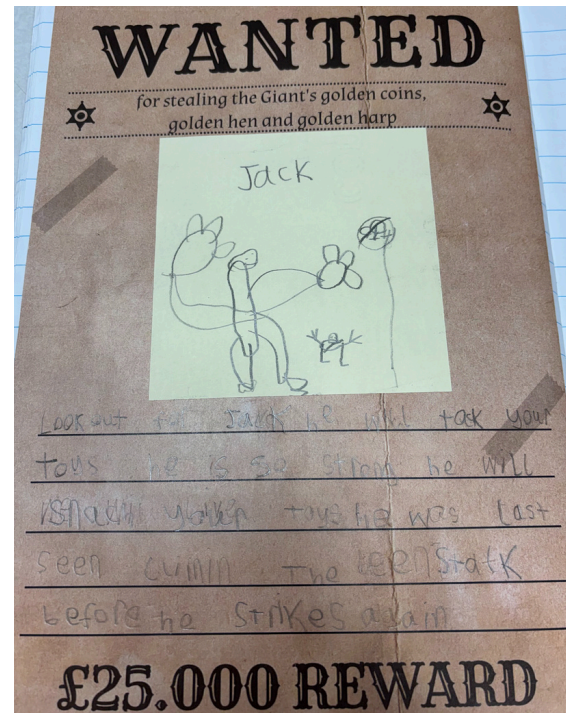 WANTED
for stealing the Giant's golden coins,
golden hen and golden harp
Jack
Look out he tak your
toys he is strong he will
toys he was last
seen the
before he strikes again
£25.000 REWARD